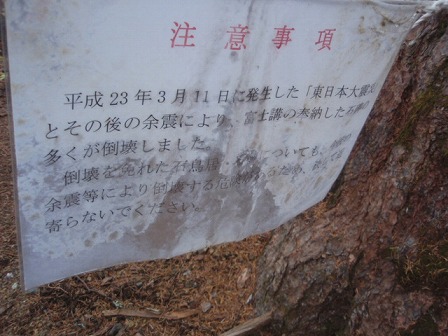 注意事項
平成23年3月11日に発生した「東日本大震災
とその後の余震により、富士講の奉納した石
多くが倒壊しました。
倒壊を免れた石鳥居・についても、
余震等により倒壊する危険があるため、
寄らないでください。